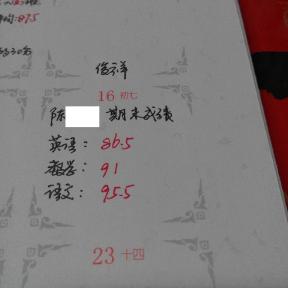 16 初七
陈 期末成绩
英语: 86.5
数学: 91
语文: 95.5
23 十四